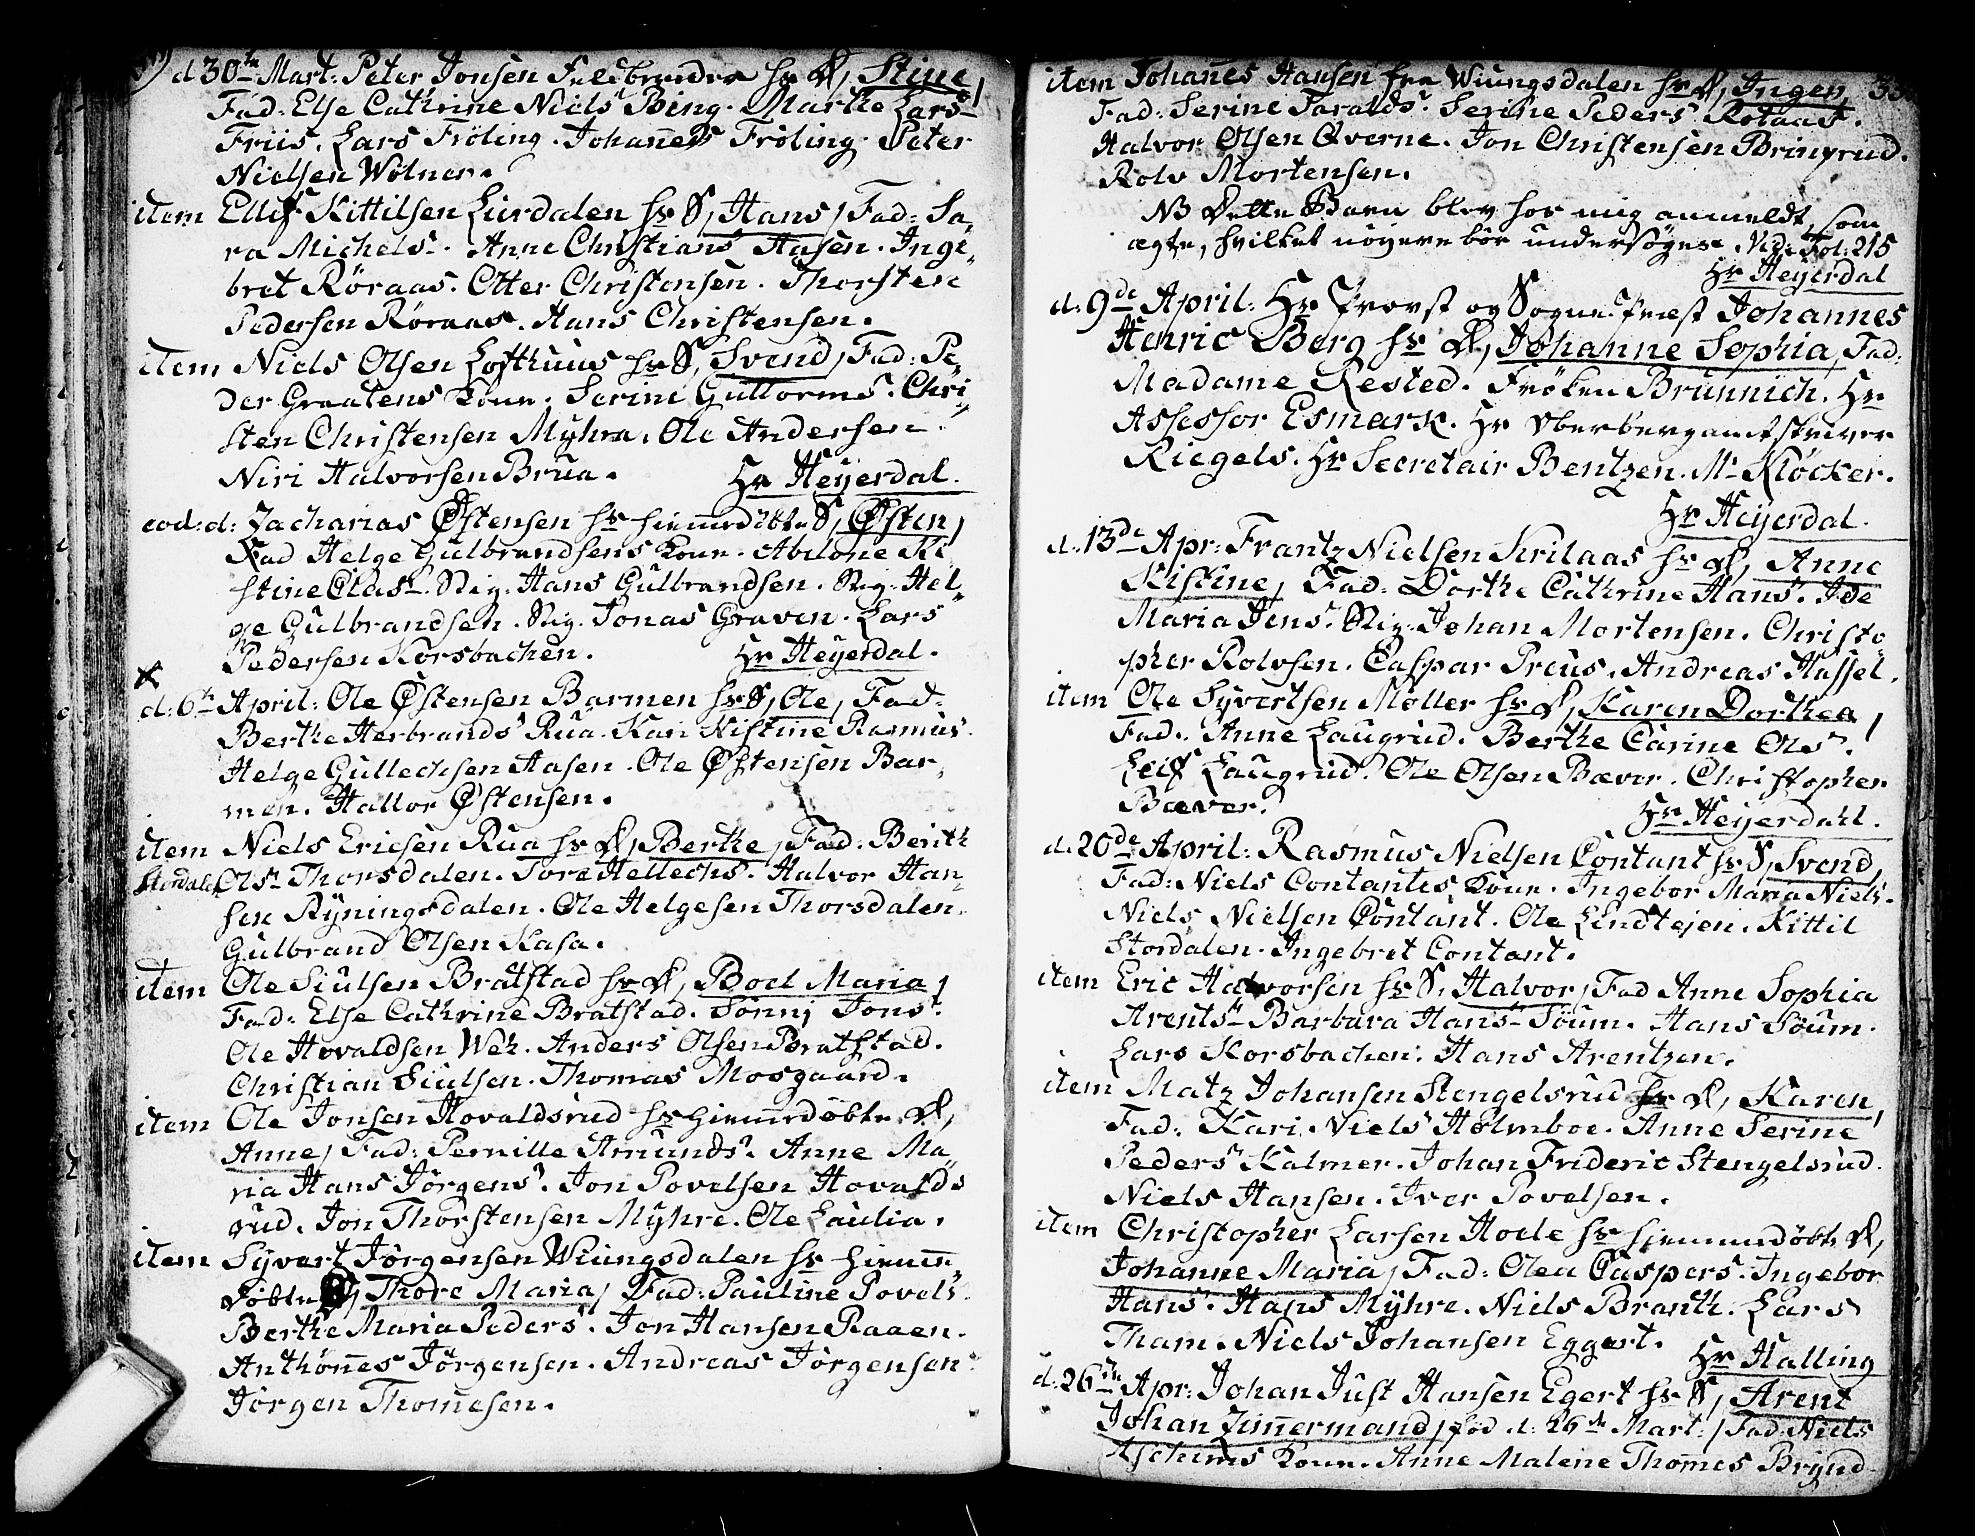 d 30te Mart: Peter Jonsen Feldbereder hs D, Stine,
Fad: Else Cathrine Niels Bing. Marthe Lars
Friis. Lars Fröling. Johannes Fröling. Peter
Nielsen Wölner.
item Ellif Kittilsen Lierdalen hs S, Hans, Fad: Sa-
ra Michels. Anne Christians Aasen. Inge-
bret Röraas. Otter Christensen. Thorsten
Pedersen Röraas. Hans Christensen.
item Niels Olsen Lofthuus hs S, Svend, Fad: Pe-
der Graatens Kone. Serine Guttorms. Chri-
sten Christensen Myhra. Ole Andersen.
Niri Halvorsen Brua. Hr Heyerdal.
eod: d: Zacharias Østensen hs hiemmedöbte S, Østen,
Fad Helge Gulbrandsens Kone. Abelone Ki-
stine Clas. Stig: Hans Gulbrandsen. Stig: Hel-
ge Gulbrandsen. Stig. Jonas Graven. Lars
Pedersen Korsbachen. Hr Heyerdal.
d: 6te April: Ole Østensen Barmen hs S, Ole, Fad:
Berthe Herbrands Rua. Kari Kistine Rasmus.
Helge Gullechsen Aasen. Ole Østensen Bar-
men. Hallor Østensen.
item Niels Ericsen Rua hs D, Berthe, Fad: Berith
Stordalen Ols Thorsdalen. Tore Hellechs. Halvor Han-
sen Ryningsdalen. Ole Helgesen Thorsdalen.
Gulbrand Olsen Kasa.
item Ole Siulsen Bratstad hs D, Boel Maria,
Fad: Else Cathrine Bratstad. Sönnj Jons.
Ole Hovaldsen Weh. Anders Olsen Bratstad.
Christian Siulsen. Thomas Mosgaard.
item Ole Jonsen Hovaldsrud hs hiemmedöbte D,
Anne, Fad: Pernille Amunds. Anne Ma-
ria Hans Jörgens. Jon Povelsen Hovalds
rud. Jon Thorstensen Myhre. Ole Laulia.
item Syvert Jörgensen Wiungsdalen hs hiemme-
döbte D, Thore Maria, Fad: Pauline Povels.
Berthe Maria Peders. Jon Hansen Raaen.
Anthönnes Jörgensen. Andreas Jörgensen
Jörgen Thomesen.
item Johannes Hansen fra Wiungsdalen hs D, Ingen,
Fad: Serine Taralds. Serine Peders Rotaas.
Halvor Olsen Qverne. Jon Christensen Bringrud.
Rolv Mortensen.
NB Dette Barn blev hos mig anmeldt, som
ægte, hvilket nöyere bör undersöges. Vid: Fol: 215
Hr Heyerdal
d: 9de April: Hr Provst og Sogne Præst Johannes
Henric Berg hs D, Johanne Sophia, Fad:
Madame Rested. Fröken Brünnich. Hr
Assessor Esmark. Hr Oberbergamtskriver
Riegels. Hr Secretair Bentzen. Mr Klöcker.
Hr Heyerdal.
d: 13de Apr: Frantz Nielsen Krilaas hs D, Anne
Kistine, Fad: Dorthe Cathrine Hans. Ide
Maria Jens. Stig: Johan Mortensen. Christo-
pher Rolvsen. Caspar Preus. Andreas Hassel.
item Ole Syvertsen Møller hs D, Karen Dorthea,
Fad: Anne Laugrud. Berthe Carine Ols.
Leif Laugrud. Ole Olsen Bæver. Christopher
Bæver. Hr Heyerdahl.
d: 20de April: Rasmus Nielsen Contant hs S, Svend,
Fad: Niels Contantes Kone. Ingebor Maria Niels.
Niels Nielsen Contant. Ole Lindtejen. Kittil
Stordalen. Ingebret Contant.
item Eric Halvorsen hs S, Halvor, Fad Anne Sophia
Arents Barbara Hans Söum. Hans Söum.
Lars Korsbachen. Hans Arentzen.
item Matz Johansen Stengelsrud hs D, Karen,
Fad: Kari Niels Holmboe. Anne Serine
Peders Kalmer. Johan Frideric Stengelsrud.
Niels Hansen. Iver Povelsen.
item Christopher Larsen Hoele hs hjemmedöbte D,
Johanne Maria, Fad: Olea Caspers. Ingebor
Hans. Hans Myhre. Niels Branth. Lars
Tham. Niels Johansen Eggert. Hr Halling
d: 26de Apr: Johan Just Hansen Egert hs S, Arent
Johan Zimmermand, föd d: 26de Mart:, Fad: Niels
Aschims Kone. Anne Malene Thomes Brynd